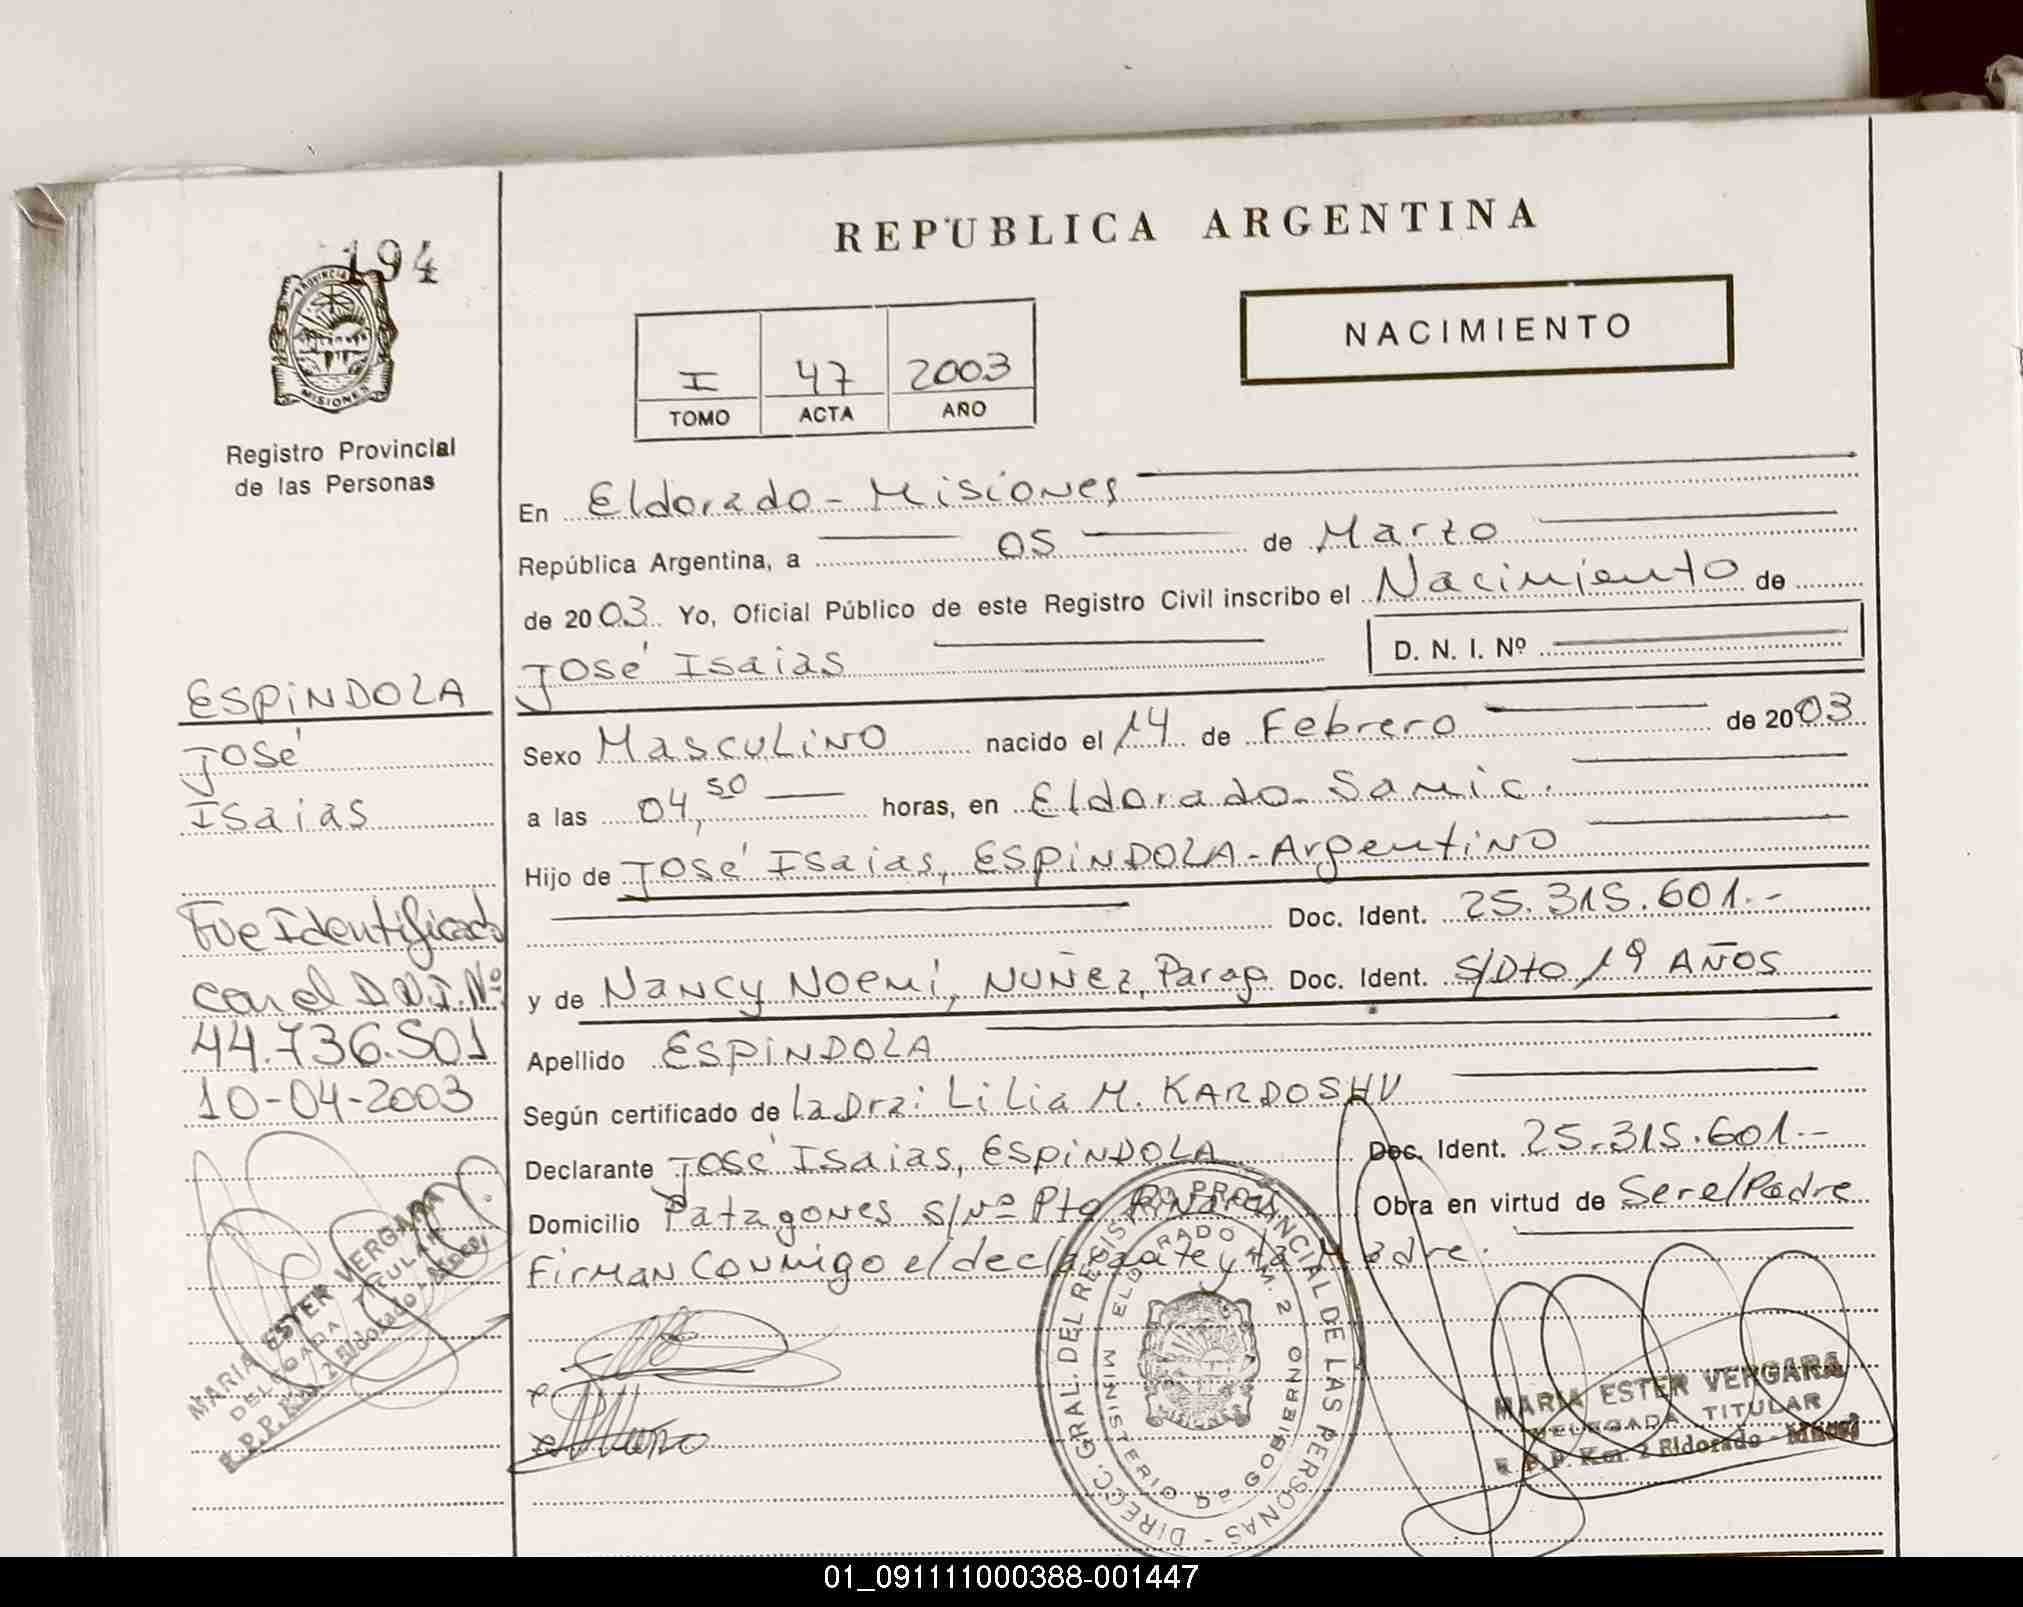 194
PROVINCIA
MISIONES
Registro Provincial
de las Personas
REPUBLICA ARGENTINA
NACIMIENTO
I 47 2003
TOMO ACTA AÑO
En Eldorado - Misiones
República Argentina, a 05 de Marzo
de 2003. Yo, Oficial Público de este Registro Civil inscribo el Nacimiento de
José Isaias D. N. I. Nº
Sexo Masculino nacido el 14 de Febrero de 2003
a las 04,50 horas, en Eldorado - Samic.
Hijo de José Isaias, ESPINDOLA - Argentino
Doc. Ident. 25.315.601.-
y de Nancy Noemi, NUÑEZ, Parag. Doc. Ident. S/Dto 19 AÑOS
Apellido ESPINDOLA
Según certificado de la Dra: Lilia M. KARDOSHU
Declarante José Isaias, ESPINDOLA Doc. Ident. 25.315.601.-
Domicilio Patagones s/nº Pto Obra en virtud de Ser el Padre
Firman conmigo el declarante y la Madre.
ESPINDOLA
José
Isaias
Fue Identificado
con el D.N.I. Nº
44.736.501
10-04-2003
MARIA ESTER VERGARA
DELEGADA TITULAR
R.P.P. Km. 2 Eldorado - Mnes.
DIRECC. GRAL. DEL REGISTRO PROVINCIAL DE LAS PERSONAS -
ELDORADO KM. 2
MINISTERIO DE GOBIERNO
MISIONES
MARIA ESTER VERGARA
DELEGADA TITULAR
R.P.P. Km. 2 Eldorado - Mnes.
01_091111000388-001447